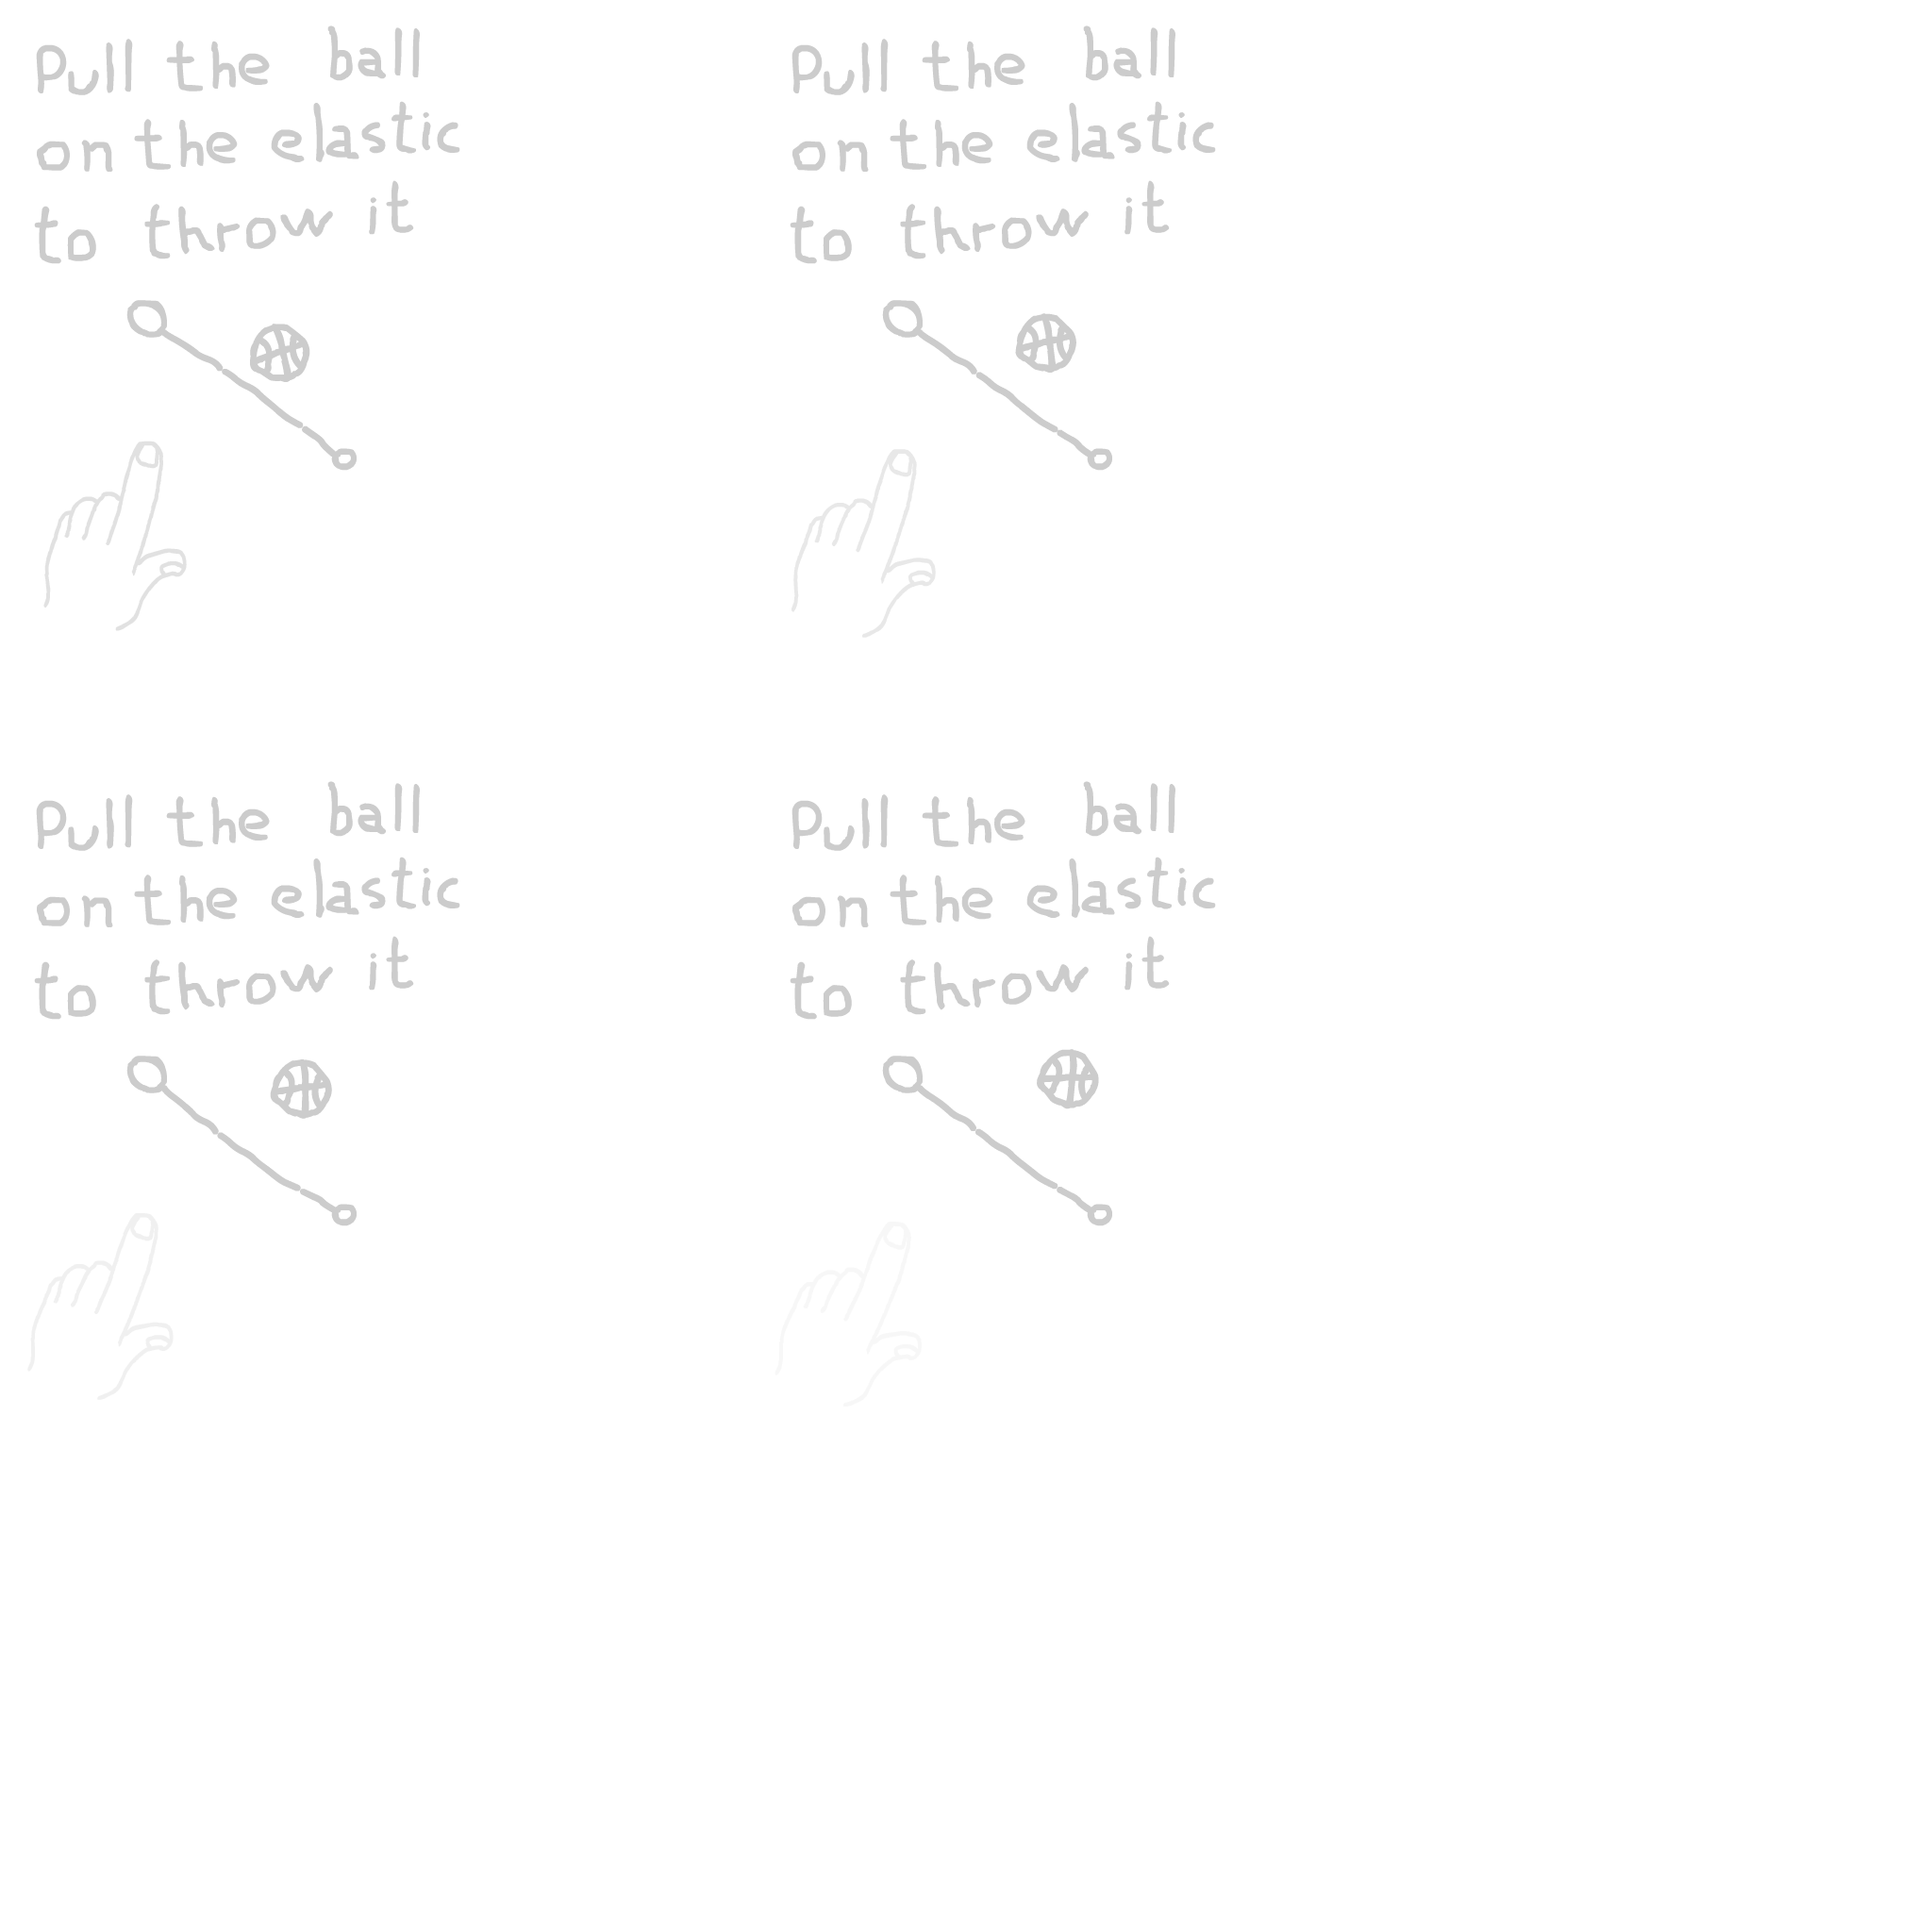 Pull the ball
on the elastic
to throw it
Pull the ball
on the elastic
to throw it
Pull the ball
on the elastic
to throw it
Pull the ball
on the elastic
to throw it